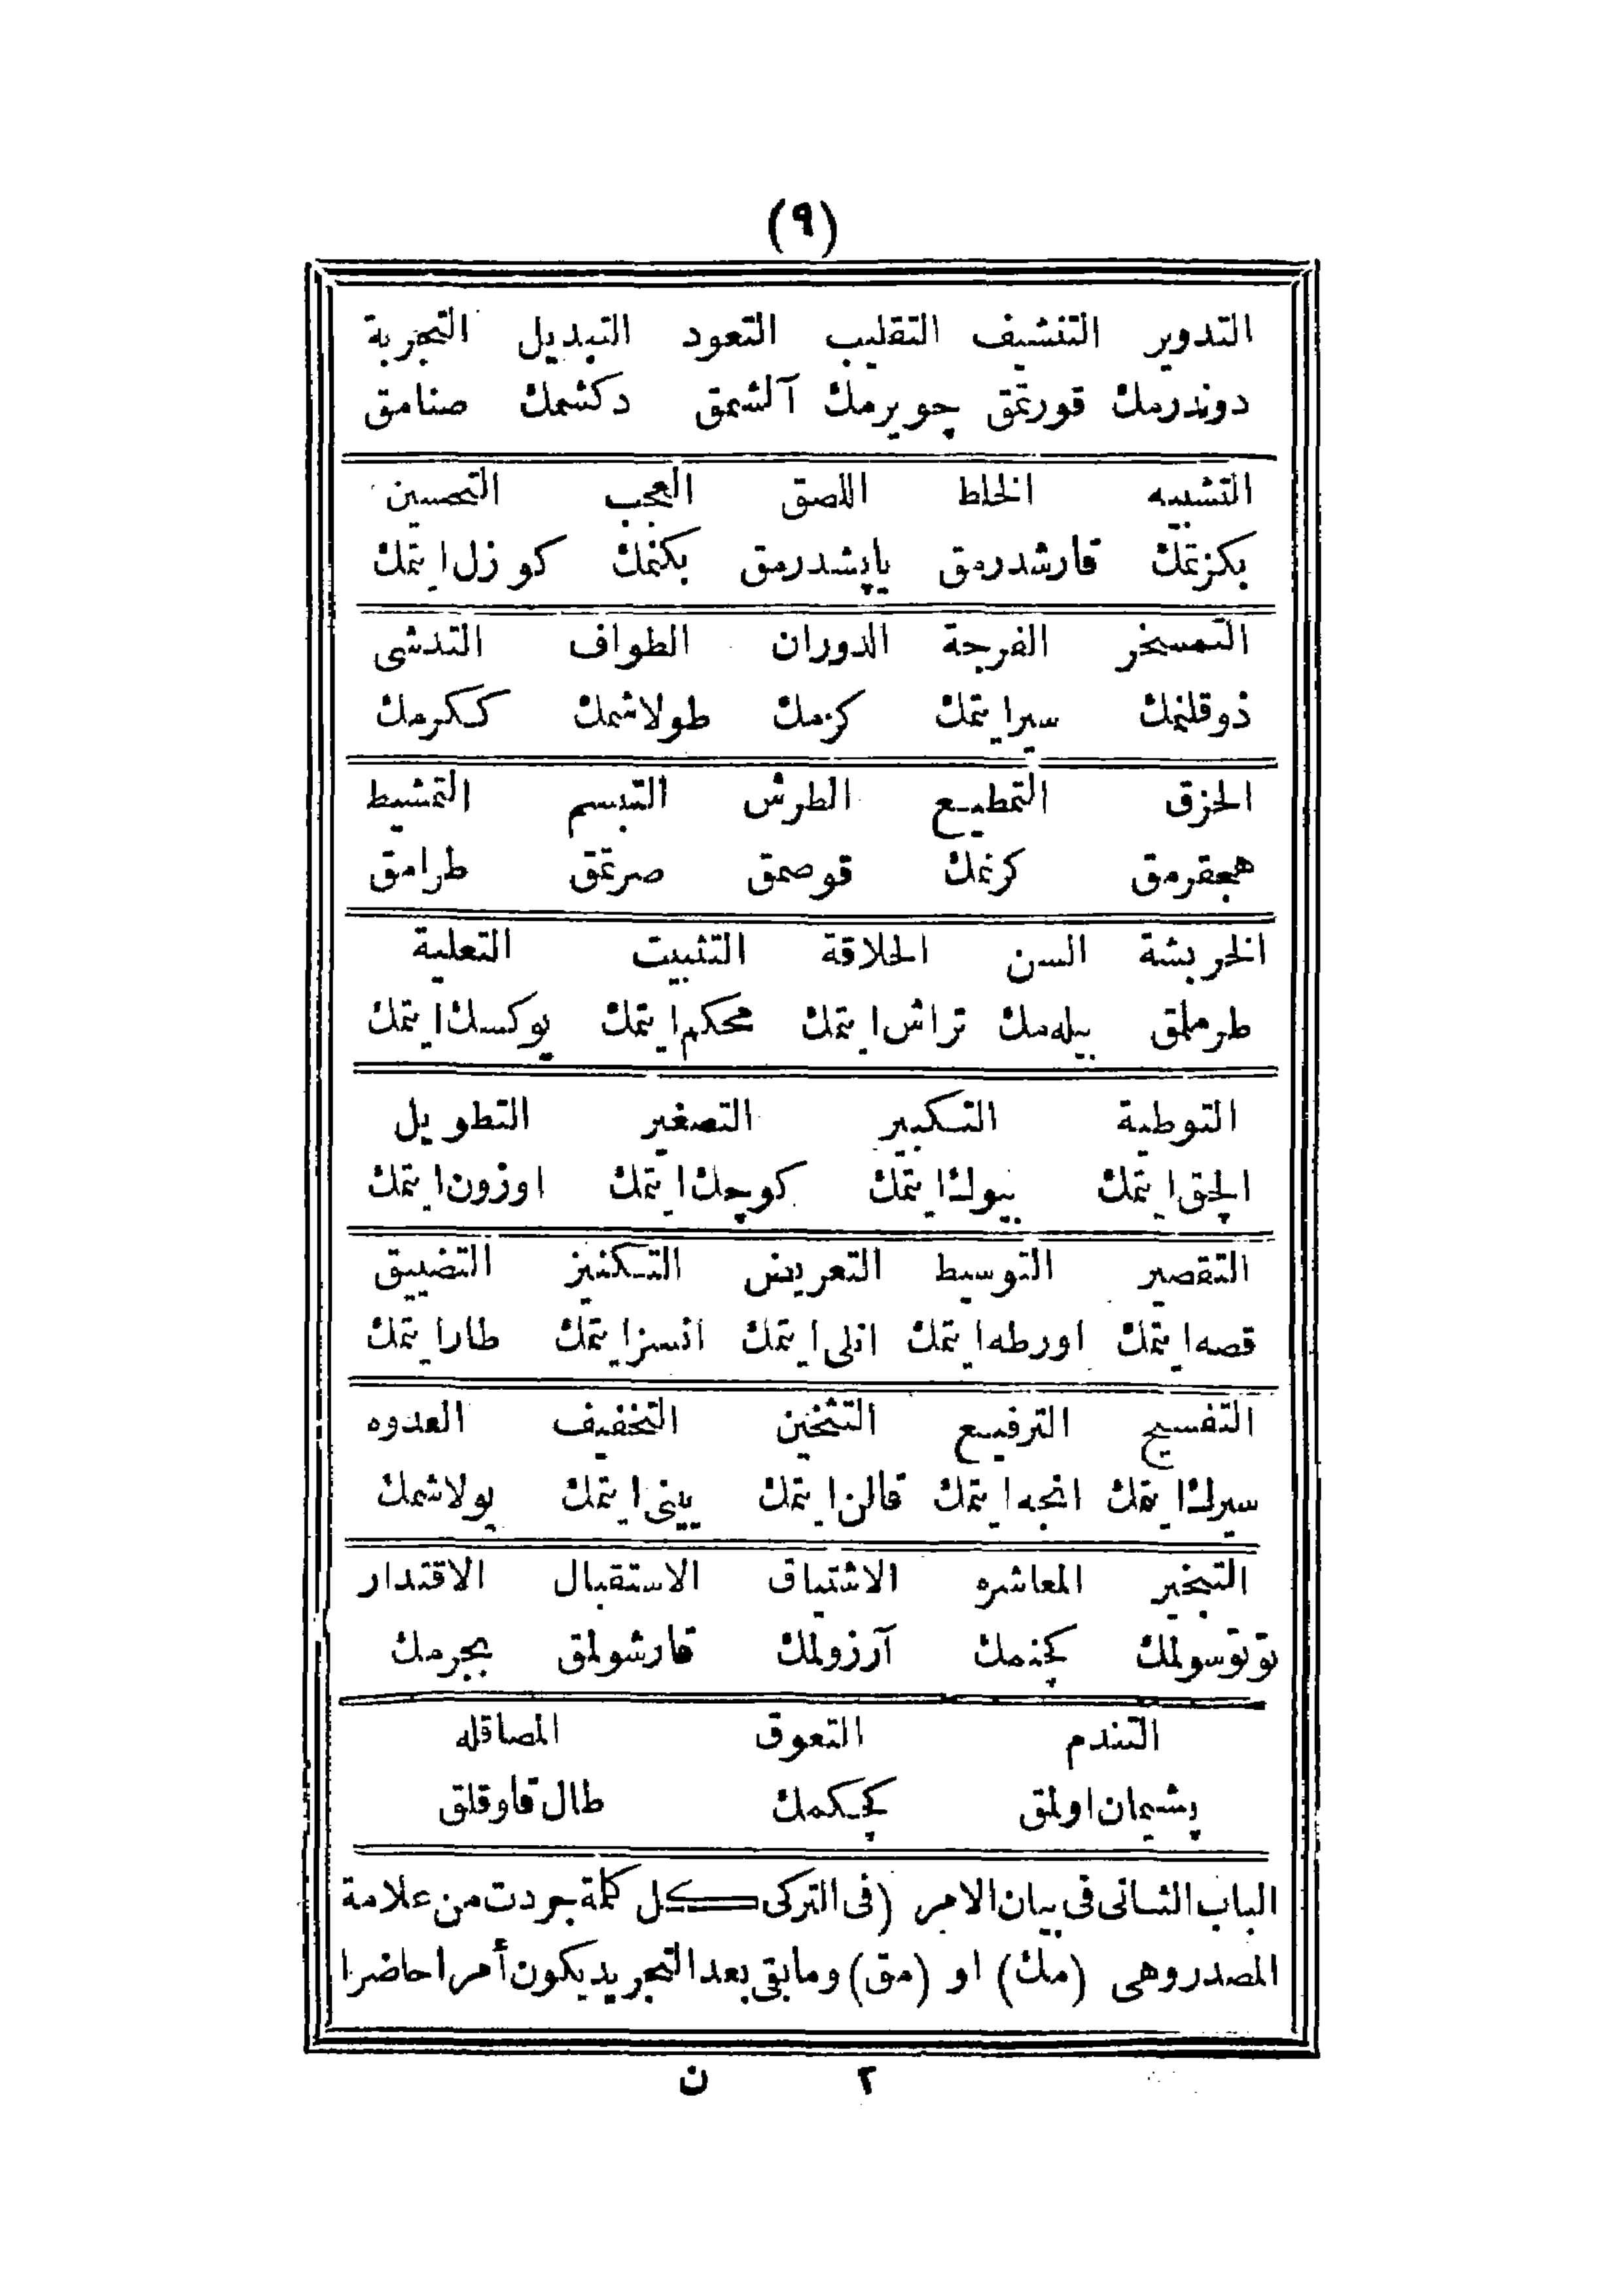 (٩)
التدوير التنشيف التقليب التعود التبديل التجربة
دوندرمك قورتمق چويرمك آلشمق دكشمك صنامق
التشبيه الخلط اللصق العجب التحسين
بكزتمك قارشدرمق ياپشدرمق بكنمك كوزل ايتمك
التمسخر الفرجة الدوران الطواف التدشى
ذوقلنمك سيرايتمك كزمك طولاشمك ككرمك
الحزق التمطيع الطرش التبسم التمشيط
هيچقرمق كرنمك قوصمق صرتمق طرامق
الخربشة السن الحلاقة التثبيت التعلية
طرملق بيله مك تراش ايتمك محكم ايتمك يوكسك ايتمك
التوطية التكبير التصغير التطويل
الچق ايتمك بيوك ايتمك كوچك ايتمك اوزون ايتمك
التقصير التوسيط التعريض التكنيز التضييق
قصه ايتمك اورطه ايتمك انلى ايتمك انسز ايتمك طار ايتمك
التفسيح الترفيع التثخين التخفيف العدوه
سيرك ايتمك انجه ايتمك قالن ايتمك ييني ايتمك بولاشمك
التبخير المعاشره الاشتياق الاستقبال الاقتدار
توتوسولمك كچنمك آرزولمك قارشولمق بجرمك
التندم التعوق المصاقله
پشيمان اولمق كچكمك طال قاوقلق
الباب الثانى فى بيان الامر (فى التركى كل كلمة جردت من علامة
المصدر وهى (مك) او (مق) وما بقى بعد التجريد يكون أمرا حاضرا
٢ ن